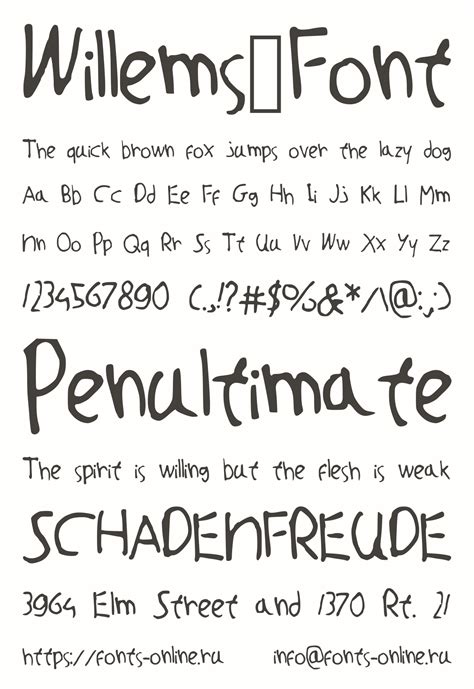 Willems▯Font
The quick brown fox jumps over the lazy dog
Aa Bb Cc Dd Ee Ff Gg Hh Ii Jj Kk Ll Mm
Nn Oo Pp Qq Rr Ss Tt Uu Vv Ww Xx Yy Zz
1234567890 (.,!?#$%&*/\@:;)
Penultimate
The spirit is willing but the flesh is weak
SCHADENFREUDE
3964 Elm Street and 1370 Rt. 21
https://fonts-online.ru info@fonts-online.ru